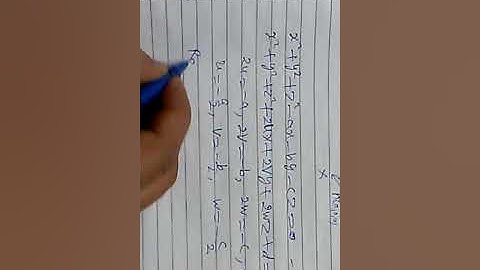 x
x²+y²+z²-ax-by-cz=0 -
x²+y²+z²+2ux+2vy+2wz+d=
2u=-a, 2v=-b, 2w=-c,
u=-a/2, v=-b/2, w=-c/2